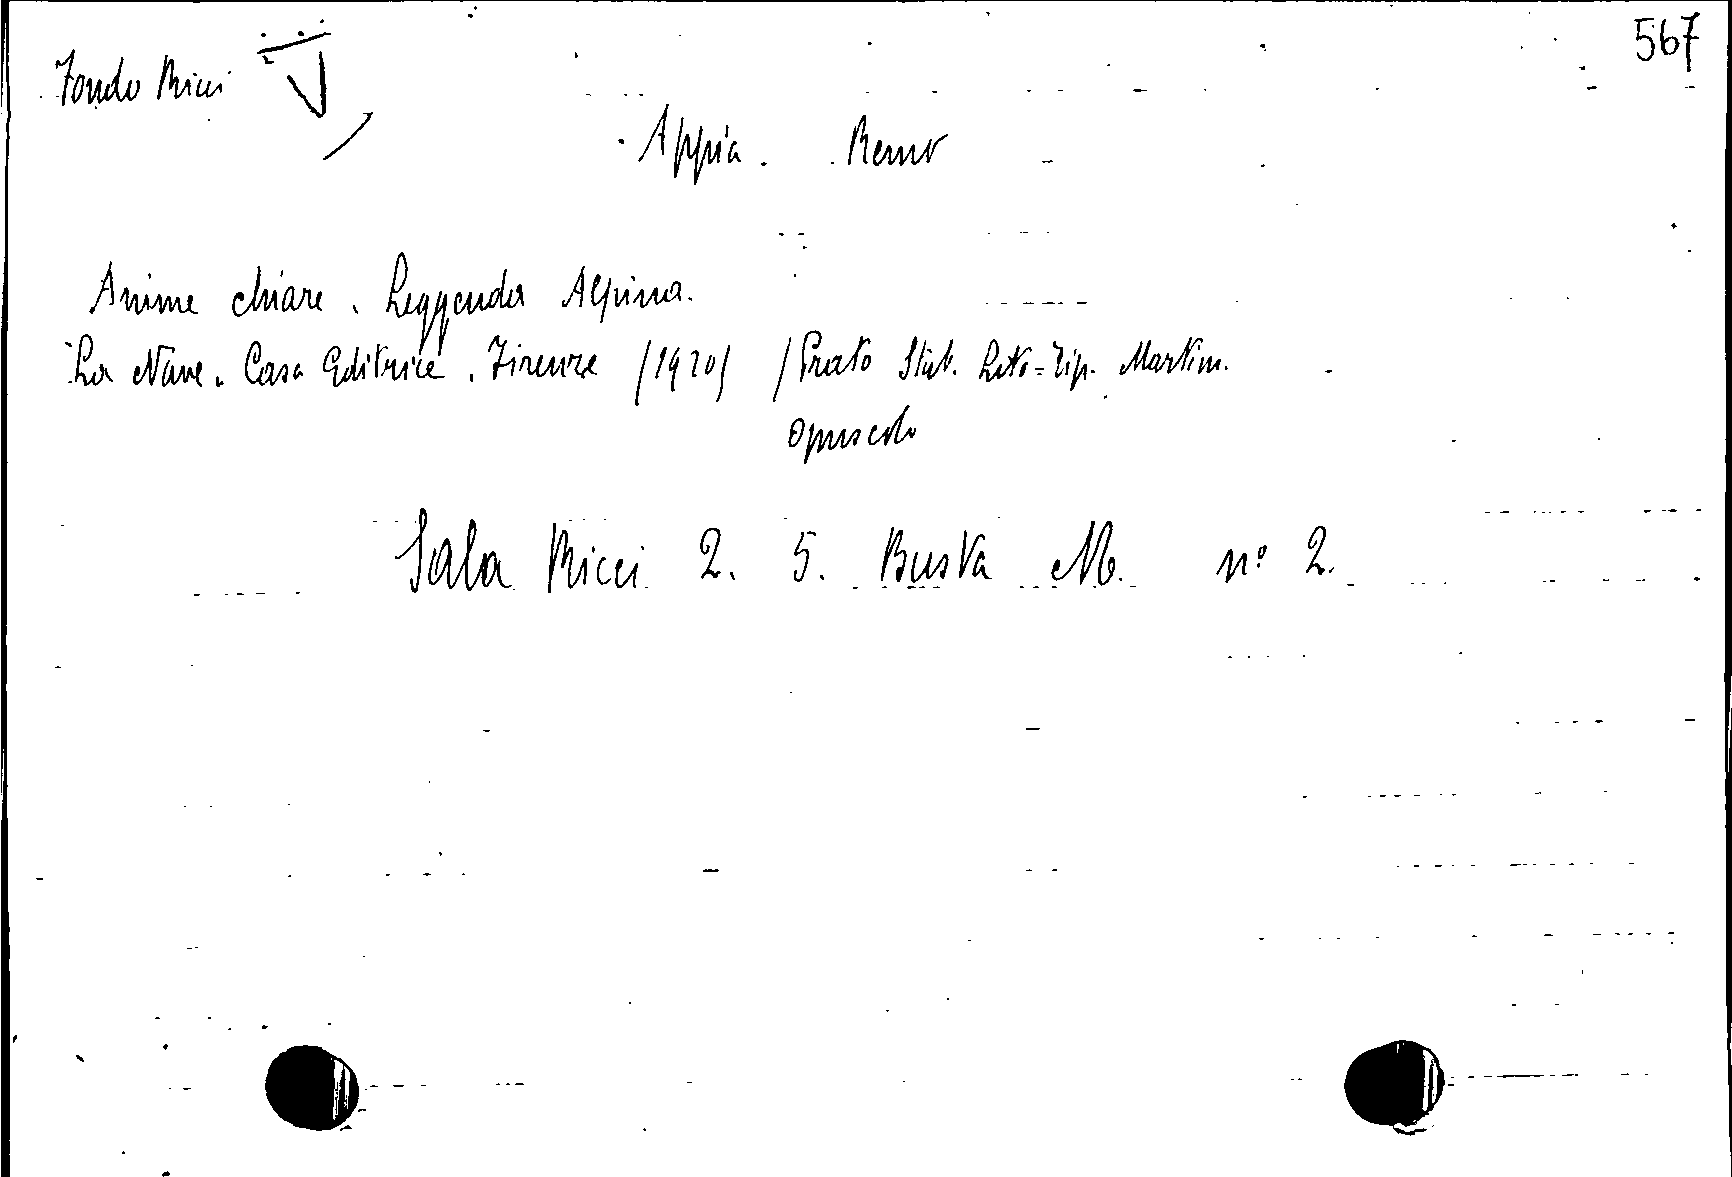 567
Fondo Ricci
Appia. Remo
Anime chiare. Leggenda Alpina.
La Nave. Casa Editrice. Firenze (1920) (Prato Stab. Lito=Tip. Martini.
opuscolo
Sala Ricci 2. 5. Busta M. n° 2.